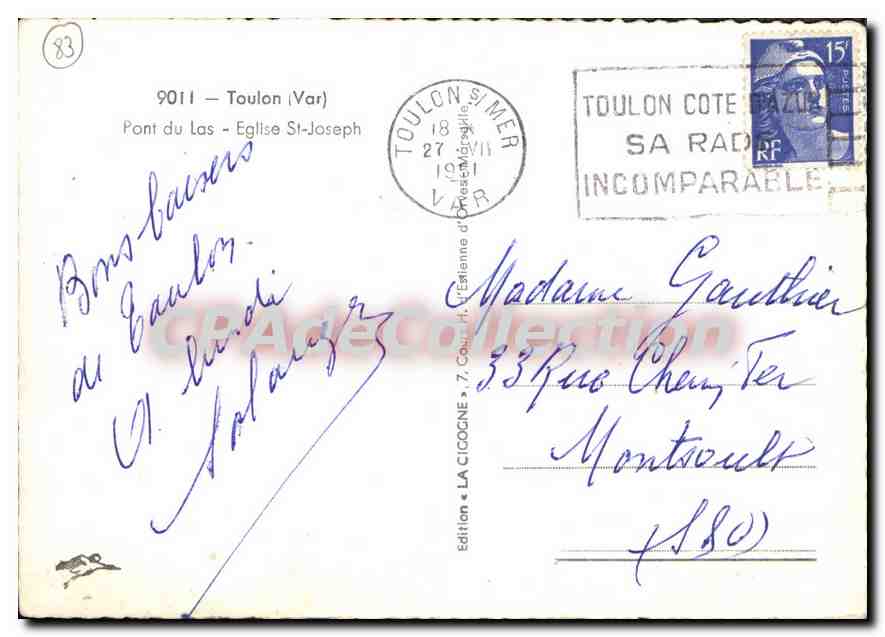 83
9011 — Toulon (Var)
Pont du Las - Eglise St-Joseph
Bons baisers
de Toulon.
A lundi
Solange
TOULON S/MER
18 H
27 VII
VAR
TOULON COTE D'AZUR
SA RADE
INCOMPARABLE
15F
POSTES
RF
Madame Gauthier
33 Rue
Montsoult
(S&O)
Edition « LA CIGOGNE », 7, Cours H. d'Estienne d'Orves - Marseille
CPAdeCollection